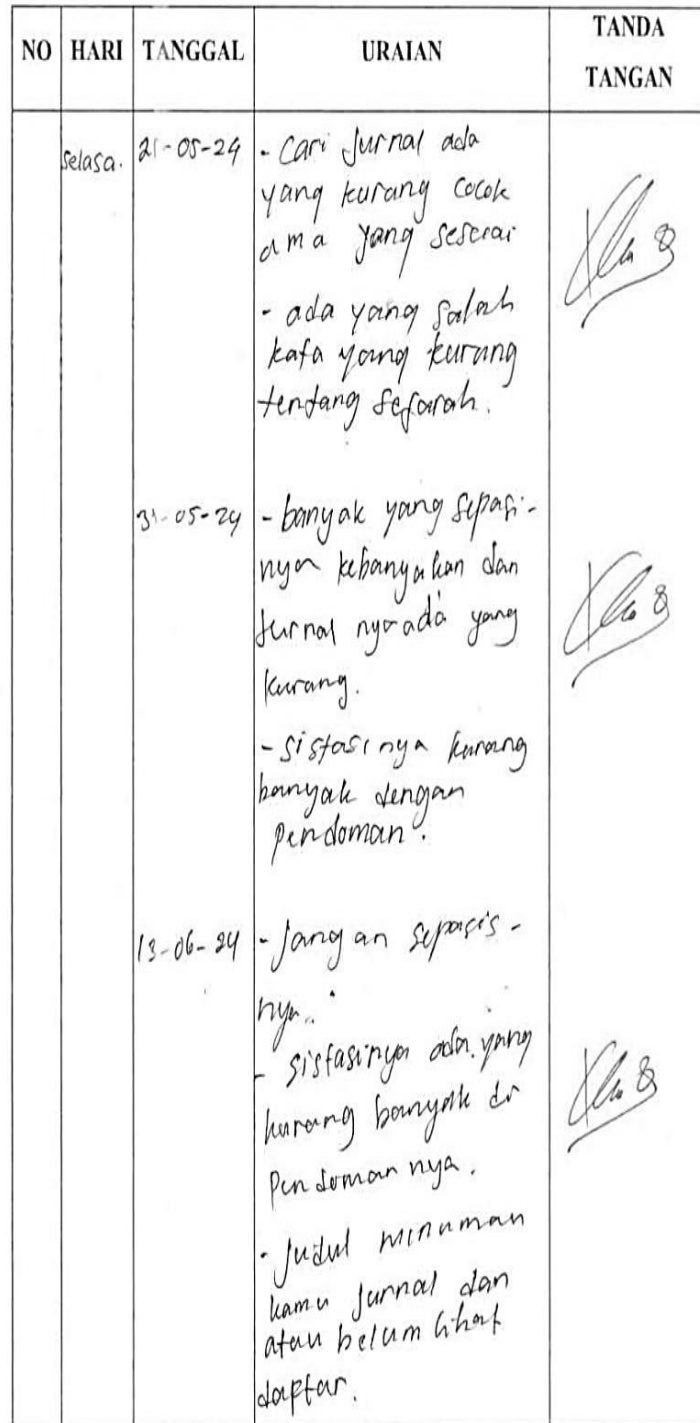 NO HARI TANGGAL URAIAN TANDA TANGAN
selasa. 21-05-24 - Cari Jurnal ada
yang kurang cocok
ama yang sesuai
- ada yang salah
kata yang kurang
tentang sejarah.
31-05-24 - banyak yang sepasi-
nya kebanyakan dan
Jurnal nya ada yang
kurang.
- sistasinya kurang
banyak dengan
pendoman.
13-06-24 - Jangan sepasis-
nya.
- sistasinya ada yang
kurang banyak di
pendoman nya.
- Judul minuman
kamu Jurnal dan
atau belum lihat
daftar.